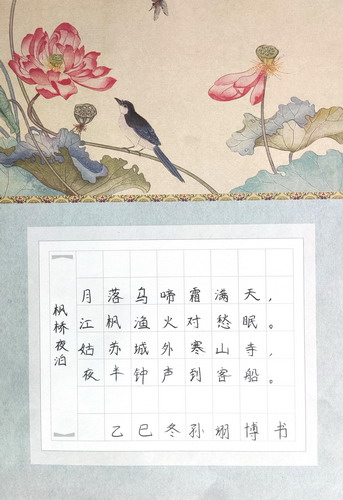 枫桥夜泊
月落乌啼霜满天，
江枫渔火对愁眠。
姑苏城外寒山寺，
夜半钟声到客船。
乙巳冬孙翊博书